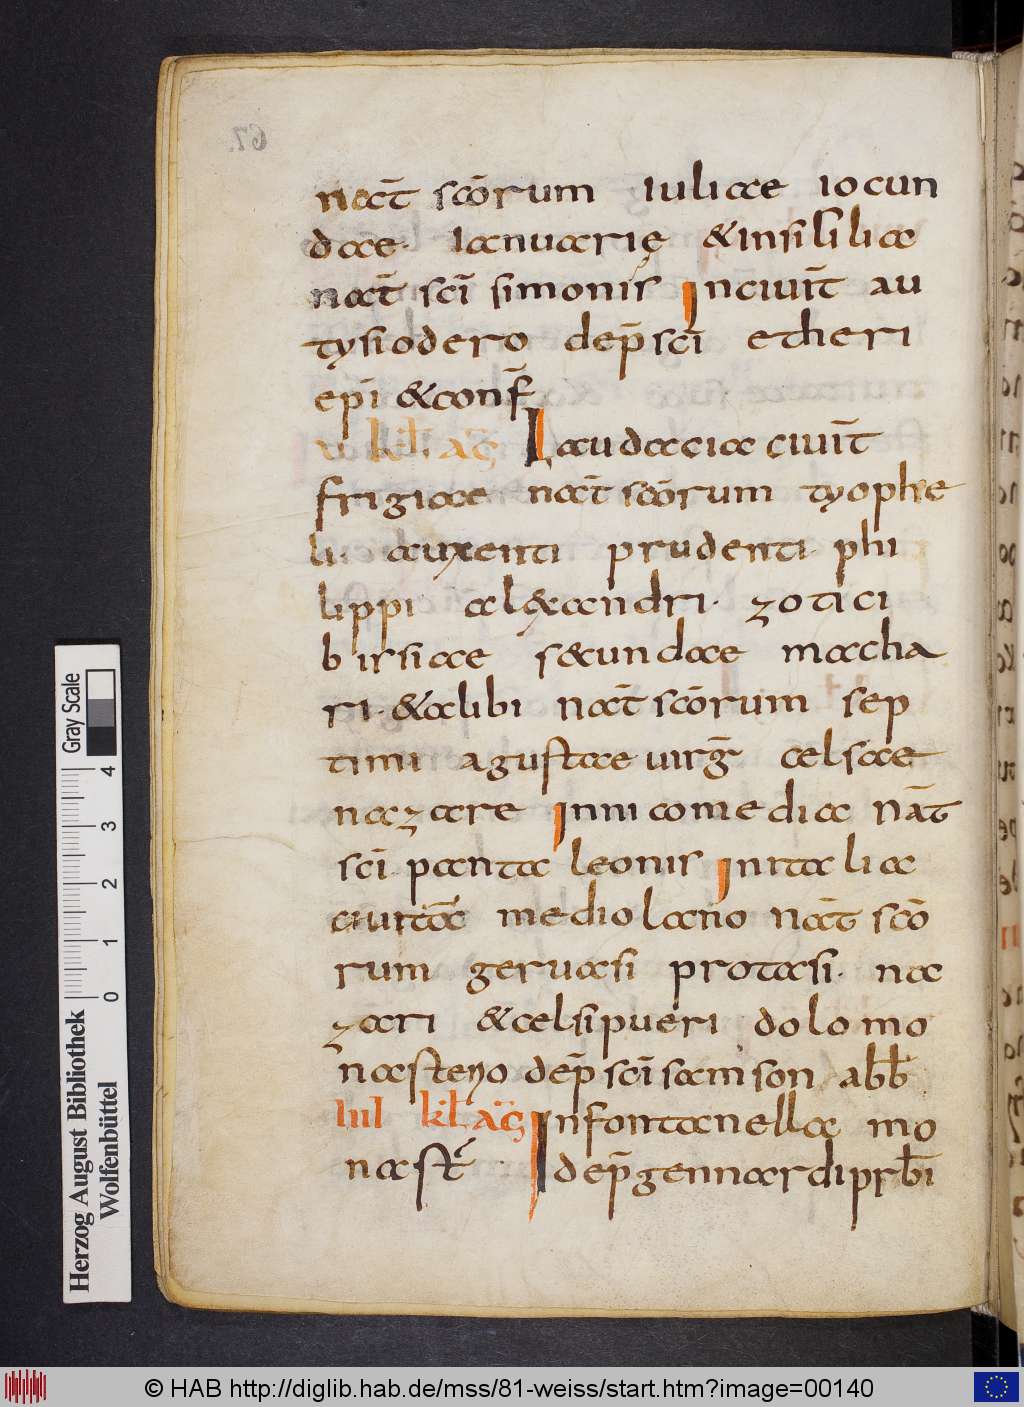 nat̄ scōrum iuliae iocun
dae· Ianuarię &insililia
nat̄ scī simonis Inciuit̄ au
tysiodero dep̄ scī etheri
ep̄i &conf̄
v kl̄ aḡ Laudacia ciuit̄
frigiae nat̄ scōrum tyophe
li· auxenti prudenti· phi
lippi al&xandri· zotici
birsiae s&cundae macha
ri· &alibi nat̄ scōrum sep
timi agustae uirḡ celsae
nazare Innicomedia nāt
scī panta leonis Initalia
ciuitāē mediolano nat̄ scō
rum geruasi protasi· na
zari &celsi pueri dolomo
nasteryo dep̄ scī samson abb̄
IIII kl̄ aḡ Infontanella mo
nast̄ dep̄ gennardi prb̄i
67.
Gray Scale
4
3
2
1
0
Herzog August Bibliothek
Wolfenbüttel
© HAB http://diglib.hab.de/mss/81-weiss/start.htm?image=00140